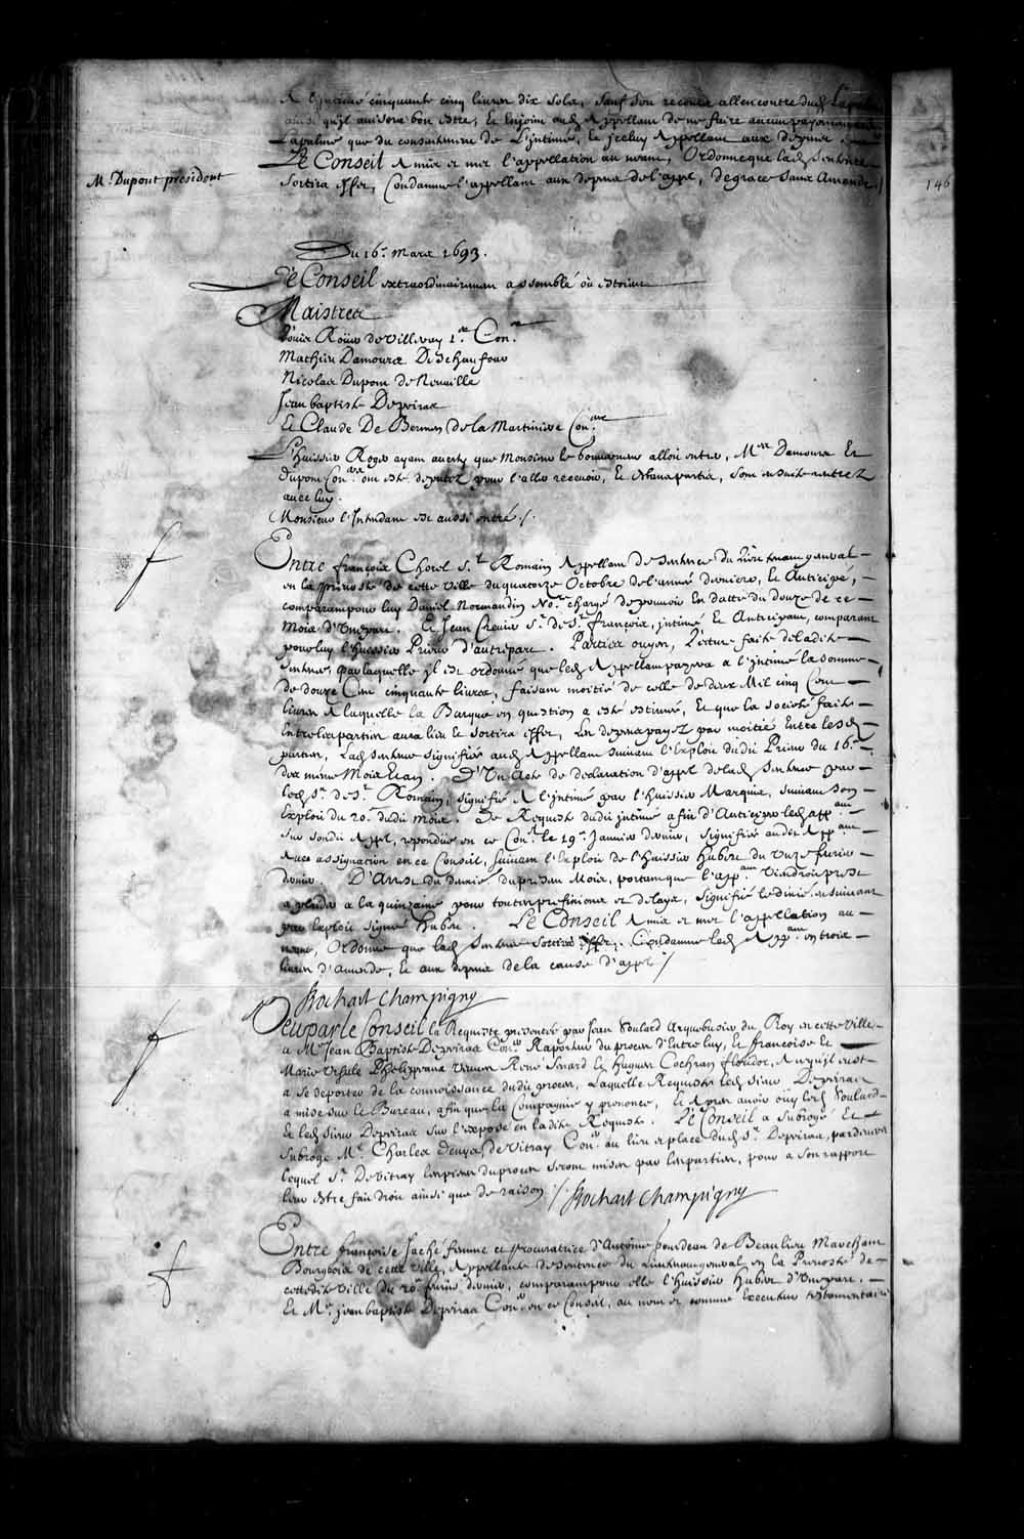 A l'Intimé cinquante cinq livres dix sols, sauf son recours allencontre dud. Lapalme
ainsi qu'il avisera bon estre, Et Enjoint aud. Appellant de ne faire aucun payement aud.
Lapalme que du consentement de l'Intimé, Et iceluy Appellant aux depens
Le Conseil A mis et met l'appellation au neant, Ordonne que lad. Sentence
M. Dupont president
sortira effet, Condamne l'appellant aux depens de l'appel, de grace sans Amende ./.
146
Du 16e. Mars 1693.
Le Conseil extraordinairement assemblé où estoient
Maistres
Louis Roüer de Villeray 1er. Conr.
Mathieu Damours Deschaufour
Nicolas Dupont de Neuville
Jean baptiste Depeiras
Et Claude De Bermen de la Martiniere Coners
L'huissier Roger ayant averty que Monsieur le Gouverneur alloit entrer, Mes. Damours Et
Dupont Coners. ont esté deputez pour l'aller recevoir, Et estant partis, sont ensuite rentrez
avec luy.
Monsieur l'Intendant est aussi entré ./.
Entre françois Chorel Sr. St Romain Appellant de Sentence du Lieutenant general
en la prevosté de cette ville du quatorze Octobre de l'année derniere, Et Anticipé,
comparant pour luy Daniel Normandin Nore. chargé de pouvoir En datte du douze de ce
mois d'Une part. Et Jean Crevier Sr. de St. françois, intimé Et Anticipant, comparant
pour luy l'huissier Prieur d'autre part. Parties ouyes, Lecture faite de ladite
Sentence par laquelle il est ordonné que led. Appellant payera a l'intimé la somme
de douze Cent cinquante livres, faisant moitié de celle de deux Mil cinq Cent
livres A laquelle la Barque en question a esté estimée, Et que la societé faite
Entre les parties aura lieu Et sortira effet, Les depens payez par moitié Entre lesd.
parties, Lad. Sentence signifiée aud. Appellant suivant l'Exploit dudit Prieur du 16e.
des mesme Mois Et an. D'Un Acte de declaration d'appel de lad. Sentence par
led. Sr. de St. Romain, signifié A l'intimé par l'huissier Marquis, suivant son
Exploit du 20e. dudit mois. De Requeste dudit intimé afin d'Anticiper led. appant.
sur sondit Appel, repondue en ce Conl. le 19e. Janvier dernier, signifiée audit Appant.
Avec assignation en ce Conseil, suivant l'Exploit de l'huissier Hubert du Unze fevrier
dernier. D'Arrest du deuxié. du present Mois, portant que l'appant. Viendroit prest
a plaider a la quinzaine pour toutes prefixions et delays, signifié led. suivant
par Exploit signé Hubert. Le Conseil A mis et met l'appellation au
neant, Ordonne que lad. Sentence sortira effet. Condamne led. Appant. en trois
livres d'amende, Et aux depens de la cause d'appel ./.
Bochart Champigny
Veu par le Conseil la Requeste presentée par Jean Soulard Arquebusier du Roy en cette ville
a Me Jean Baptiste Depeiras Coner. Raporteur du procez d'Entre luy, Et francoise Et
Marie Ursule Phelipeaux veuves René Senard Et Hugues Cochran floridor, A ce qu'il eust
a se deporter de la connoissance dudit procez, Laquelle Requeste led. Sieur Depeiras
a mise sur le Bureau, afin que la Compagnie y prononce, Et Apres avoir ouy led. Soulard
Et led. Sieur Depeiras sur l'exposé en ladite Requeste. Le Conseil a Subrogé Et
Subroge Me. Charles Denys de Vitray Coner. au lieu et place dud. Sr. Depeiras, pardevers
lequel Sr. De Vitray les pieces du procez seront mises par les parties, pour a son rapport
leur estre fait droit ainsi que de raison ./. Bochart Champigny
Entre françoise Jaché femme et procuratrice d'Antoine Gourdeau de Beaulieu Marchant
Bourgeois de cette ville, Appellante de sentence du Lieutenant general en la Prevosté de
cettedite ville du 20e. fevrier dernier, comparant pour elle l'huissier Hubert d'Une part.
Et Me. jean baptiste Depeiras Coner. en ce Conseil, au nom et comme Executeur testamentaire